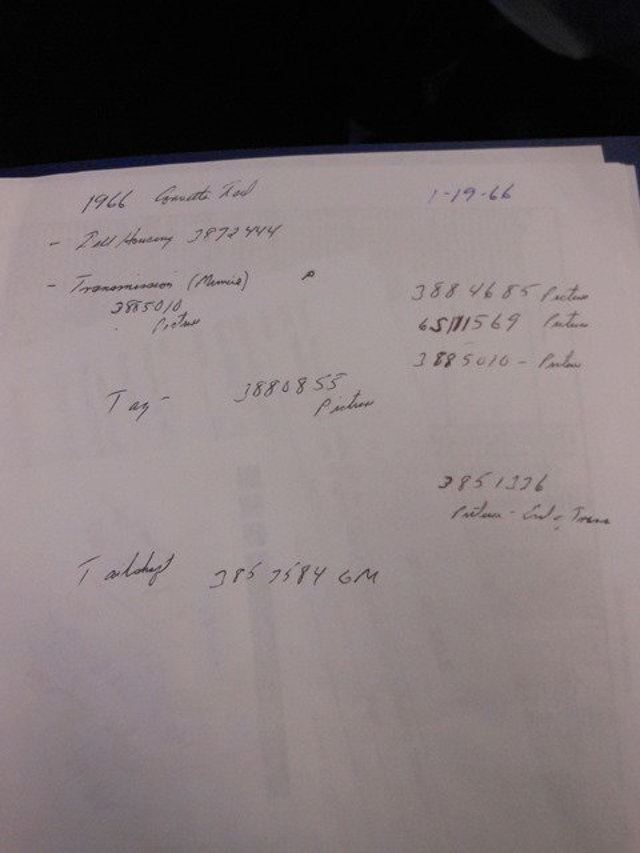 1966 Corvette 1-19-66
- Bell Housing 3872444
- Transmission (Muncie)
3885010
Picture
3884685 Picture
6S111569 Picture
3885010 - Picture
Tag - 3880855
Picture
3851326
Picture - End of Trans
3857584 GM